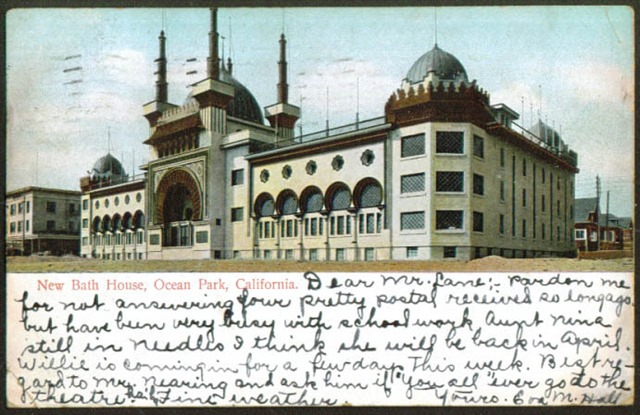 New Bath House, Ocean Park, California. Dear Mr. Lane:- Pardon me
for not answering your pretty postal received so long ago
but have been very busy with school work Aunt Nina
still in Needles I think she will be back in April.
Willie is coming in for a few days This week. Best re-
gard to Mr. Nearing and ask him if "You all" ever go to the
theatre Fine weather Yours. M. Hall